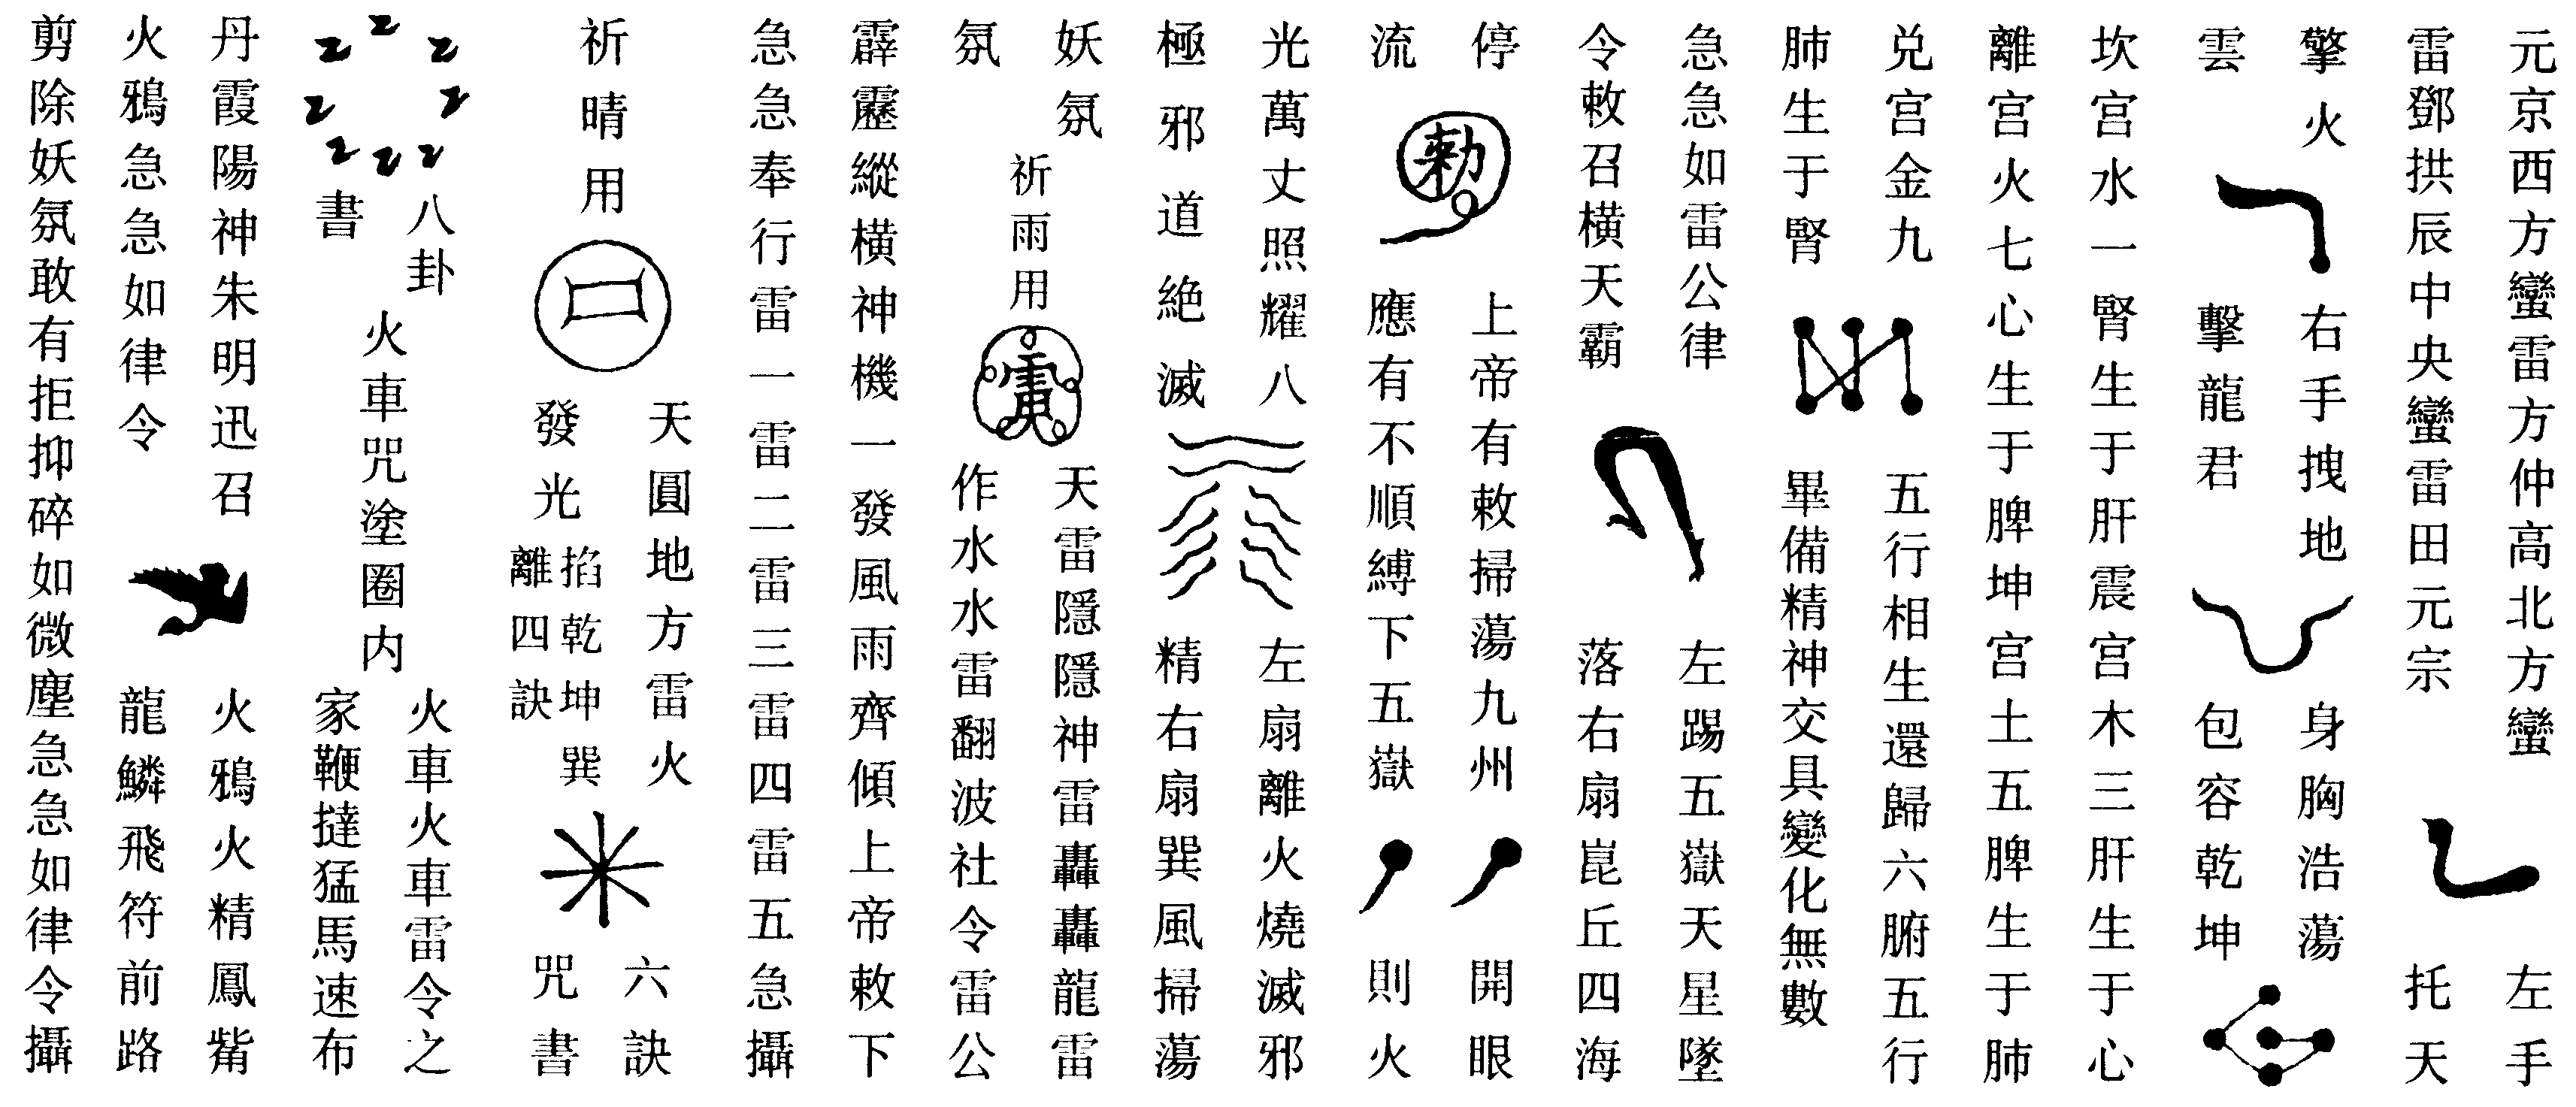 元京西方蠻雷方仲高北方蠻
雷鄧拱辰中央蠻雷田元宗
左手
托天
擎火
雲
右手拽地
擊龍君
身胸浩蕩
包容乾坤
坎宫水一腎生于肝震宫木三肝生于心
離宫火七心生于脾坤宫土五脾生于肺
兑宫金九
肺生于腎
五行相生還歸六腑五行
畢備精神交具變化無數
急急如雷公律
令敕召橫天霸
左踢五嶽天星墜
落右扇崑丘四海
停
流
勅
上帝有敕掃蕩九州
應有不順縛下五嶽
開眼
則火
光萬丈照耀八
極邪道絶滅
左扇離火燒滅邪
精右扇巽風掃蕩
妖氛
氛
祈雨用
天雷隱隱神雷轟轟龍雷
作水水雷翻波社令雷公
霹靂縱橫神機一發風雨齊傾上帝敕下
急急奉行雷一雷二雷三雷四雷五急攝
祈晴用
天圓地方雷火
發光
掐乾坤巽
離四訣
六訣
咒書
八卦
書
火車咒塗圈内
火車火車雷令之
家鞭撻猛馬速布
丹霞陽神朱明迅召
火鴉急急如律令
火鴉火精鳳觜
龍鱗飛符前路
剪除妖氛敢有拒抑碎如微塵急急如律令攝